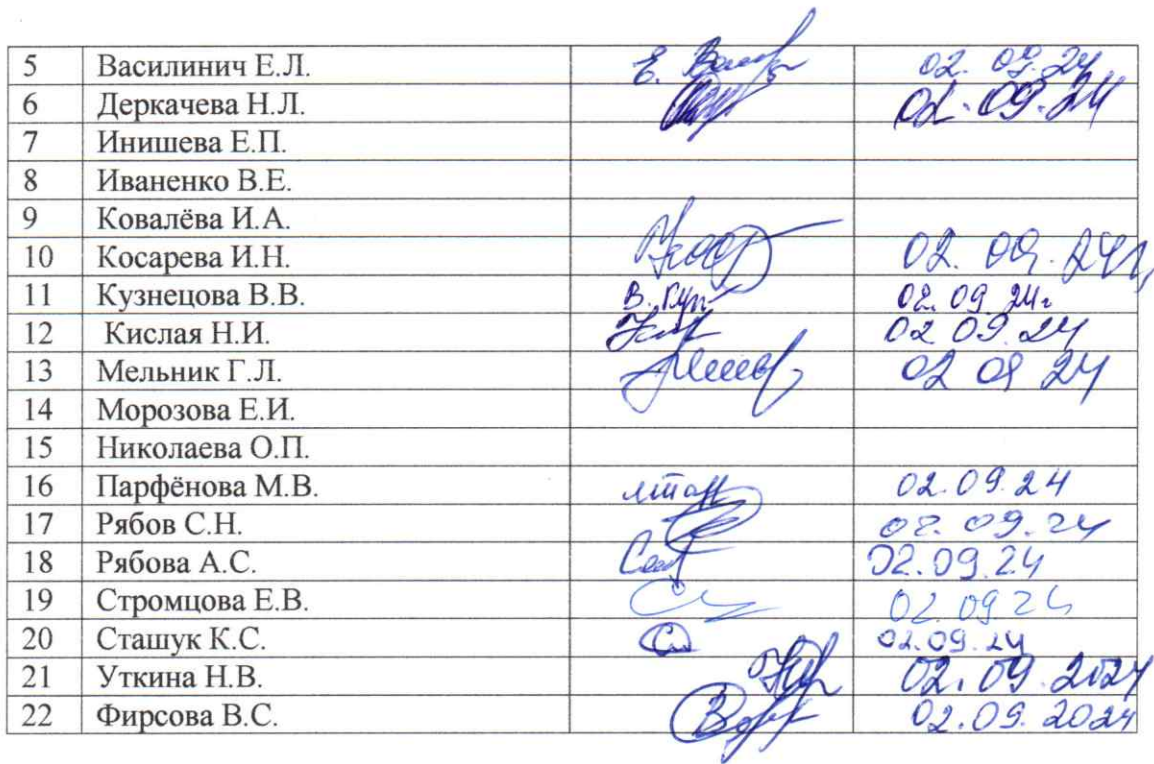 5 Василинич Е.Л. 02. 09. 24
6 Деркачева Н.Л. 02. 09. 24
7 Инишева Е.П.
8 Иваненко В.Е.
9 Ковалёва И.А.
10 Косарева И.Н. 02. 09. 24г,
11 Кузнецова В.В. 02. 09 24г
12 Кислая Н.И. 02 09. 24
13 Мельник Г.Л. 02 09 24
14 Морозова Е.И.
15 Николаева О.П.
16 Парфёнова М.В. 02.09.24
17 Рябов С.Н. 02. 09. 24
18 Рябова А.С. 02.09.24
19 Стромцова Е.В. 02 09 24
20 Сташук К.С. 02.09.24
21 Уткина Н.В. 02. 09. 2024
22 Фирсова В.С. 02.09. 2024